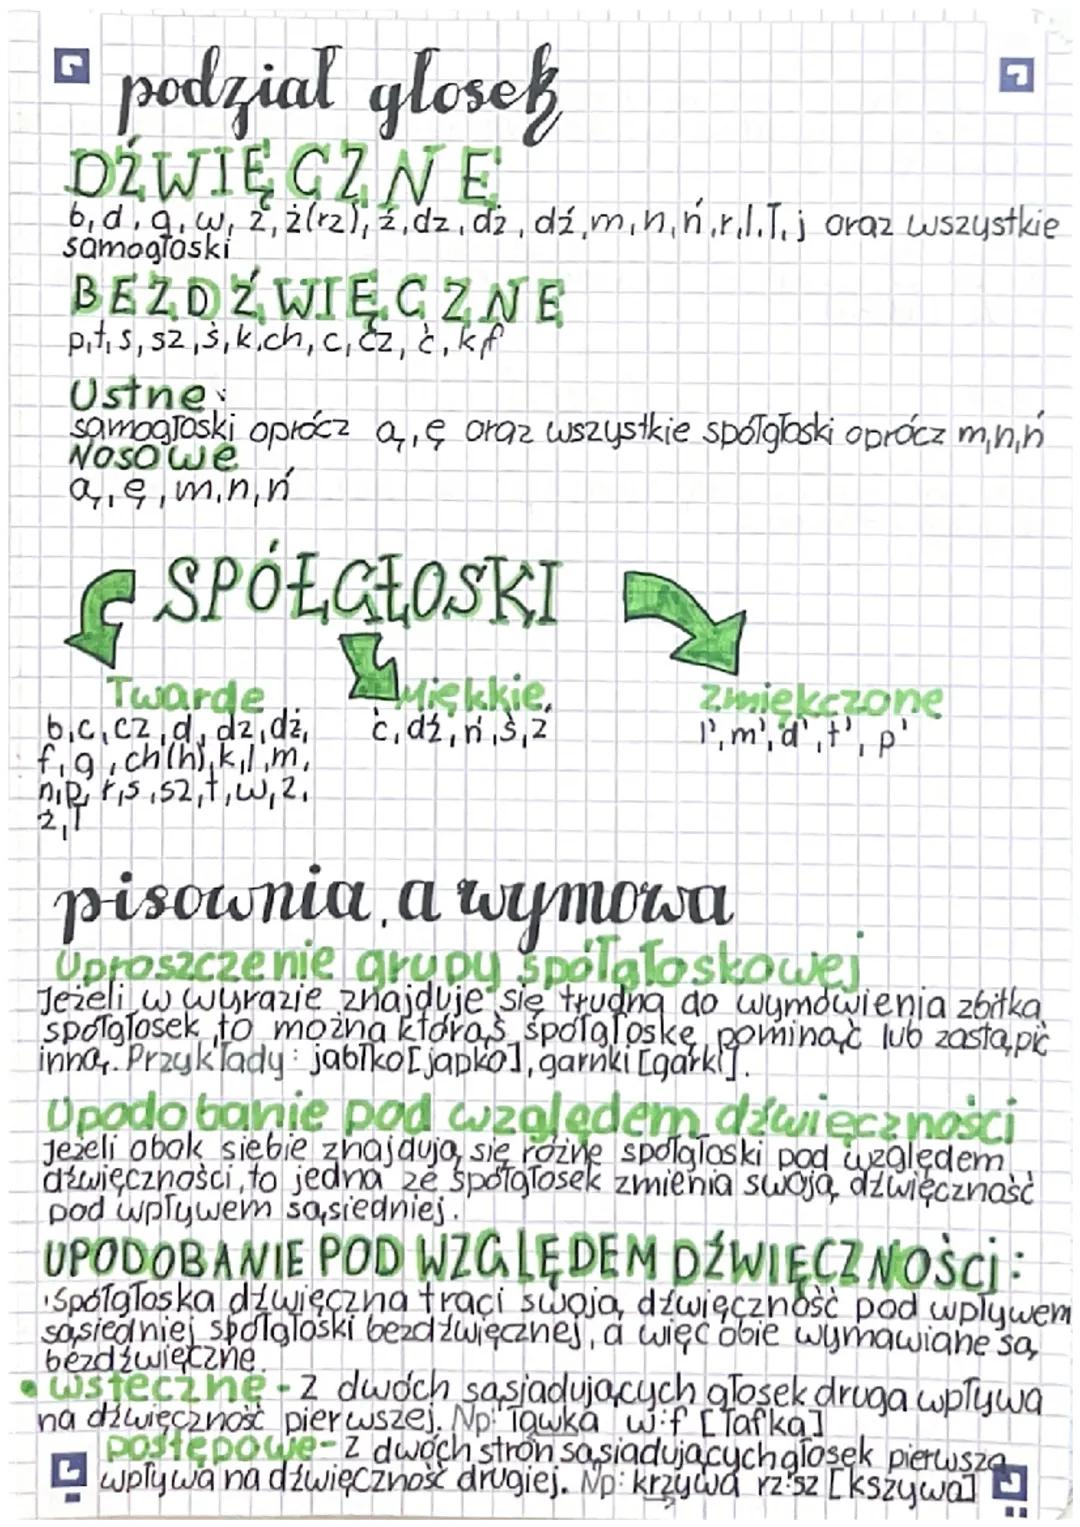 podział głosek
DŹWIĘCZNE
b, d, g, w, z, ż(rz), ź, dz, dż, dź, m, n, ń, r, l, ł, j oraz wszystkie
samogłoski
BEZDŹWIĘCZNE
p, t, s, sz, ś, k, ch, c, cz, ć, k, f
Ustne:
samogłoski oprócz ą, ę oraz wszystkie spółgłoski oprócz m, n, ń
Nosowe
ą, ę, m, n, ń
SPÓŁGŁOSKI
Twarde Miękkie, zmiękczone
b, c, cz, d, dz, dż, ć, dź, ń, ś, ź l', m', d', t', p'
f, g, ch(h), k, l, m,
n, p, r, s, sz, t, w, z,
ż, ł
pisownia, a wymowa
Uproszczenie grupy spółgłoskowej
Jeżeli w wyrazie znajduje się trudna do wymówienia zbitka
spółgłosek, to można którąś spółgłoskę pominąć lub zastąpić
inną. Przykłady: jabłko [japko], garnki [garki].
Upodobanie pod względem dźwięczności
Jeżeli obok siebie znajdują się różne spółgłoski pod względem
dźwięczności, to jedna ze spółgłosek zmienia swoją dźwięczność
pod wpływem sąsiedniej.
UPODOBANIE POD WZGLĘDEM DŹWIĘCZNOŚCI:
Spółgłoska dźwięczna traci swoją dźwięczność pod wpływem
sąsiedniej spółgłoski bezdźwięcznej, a więc obie wymawiane są
bezdźwięczne.
• wsteczne - z dwóch sąsiadujących głosek druga wpływa
na dźwięczność pierwszej. Np: ławka w:f [łafka]
postępowe - z dwóch stron sąsiadujących głosek pierwsza
wpływa na dźwięczność drugiej. Np: krzywa rz:sz [kszywa]